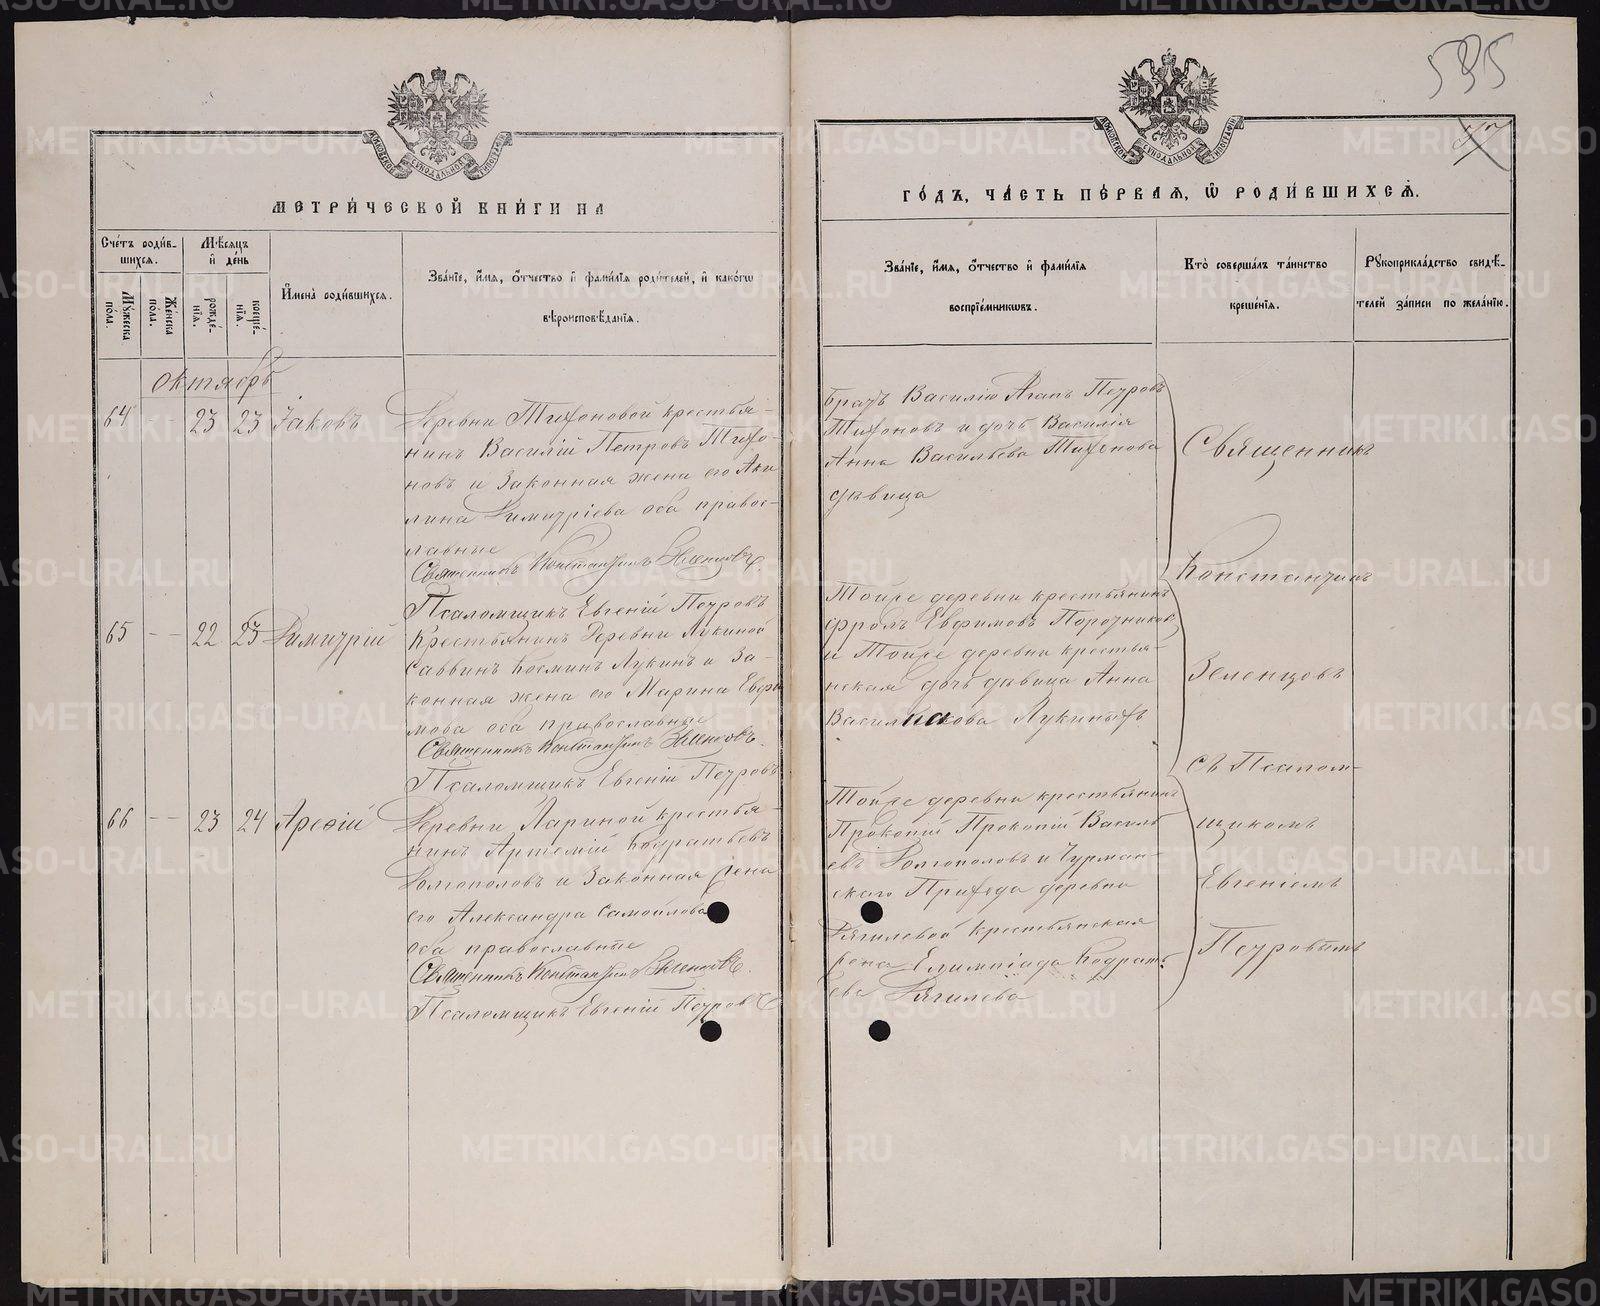 535
57
МОСКОВСКОЙ СѴНОДАЛЬНОЙ ТИПОГРАФІИ
МЕТРИ́ЧЕСКОЙ КНИ́ГИ НА
ГО́ДЪ, ЧА́СТЬ ПЕ́РВАЯ, Ѽ РОДИ́ВШИХСЯ.
Сче́тъ роди́в-
шихся.
Му́жеска по́ла.
Же́нска по́ла.
Мѣ́сяцъ
и де́нь
рожде́-
нїя.
креще́-
нїя.
И́мена роди́вшихся.
Зва́нїе, и́мя, о́тчество и фами́лїя роди́телей, и како́гѡ
вѣроисповѣ́данїя.
Зва́нїе, и́мя, о́тчество и фами́лїя
воспрїе́мникѡвъ.
Кто̀ соверша́лъ та́инство
креще́нїя.
Рꙋкоприкла́дство свидѣ́-
телей за́писи по жела́нїю.
октябрь
64 - 23 23 Іаковъ
Деревни Тифоновой крестья-
нинъ Василій Петровъ Тифо-
новъ и законная жена его Аки
лина Димитріева оба правос-
лавные
Священникъ Константинъ Зеленцовъ
Псаломщикъ Евгеній Петровъ
Братъ Василію Агапъ Петровъ
Тифоновъ и дочь Василія
Анна Васильева Тифонова
дѣвица
65 - - 22 23 Димитрій
Крестьянинъ Деревни Лукиной
Саввинъ Косминъ Лукинъ и за-
конная жена его Марина Евфи
мова оба православные
Священникъ Константинъ Зеленцовъ
Псаломщикъ Евгеній Петровъ
Тойже деревни крестьянинъ
Фролъ Евфимовъ
и Тойже деревни крестья-
нская дочь дѣвица Анна
Лукиныхъ
66 - - 23 24 Арефій
Деревни Лариной крестья-
нинъ Артемій Кодратьевъ
Долгополовъ и законная жена
его Александра Самойлова
оба православные
Священникъ Константинъ Зеленцовъ
Псаломщикъ Евгеній Петровъ
Тойже деревни крестьянинъ
Прокопій Прокопій Василь
евъ Долгополовъ и Чурман-
скаго Прихода деревни
крестьянская
жена Елимпіада Кодрать
ева
Священникъ
Константинъ
Зеленцовъ
съ Псалом-
щикомъ
Евгеніемъ
Петровымъ
METRIKI.GASO-URAL.RU